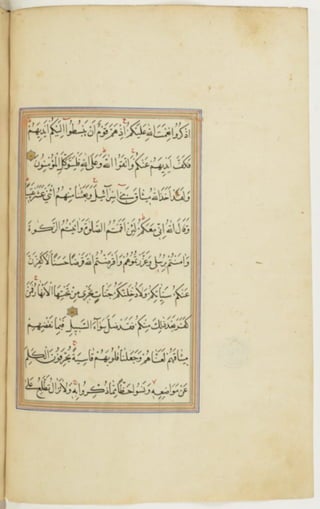 اذكروا نعمت الله عليكم اذ هم قوم ان يبسطوا اليكم ايديهم
فكف ايديهم عنكم واتقوا الله وعلى الله فليتوكل المؤمنون
ولقد اخذ الله ميثاق بني اسرائيل وبعثنا منهم اثني عشر نقيبا
وقال الله اني معكم لئن اقمتم الصلوة واتيتم الزكوة
وامنتم برسلي وعزرتموهم واقرضتم الله قرضا حسنا لاكفرن
عنكم سيئاتكم ولادخلنكم جنات تجري من تحتها الانهار فمن
كفر بعد ذلك منكم فقد ضل سواء السبيل فبما نقضهم
ميثاقهم لعناهم وجعلنا قلوبهم قاسية يحرفون الكلم
عن مواضعه ونسوا حظا مما ذكروا به ولا تزال تطلع على